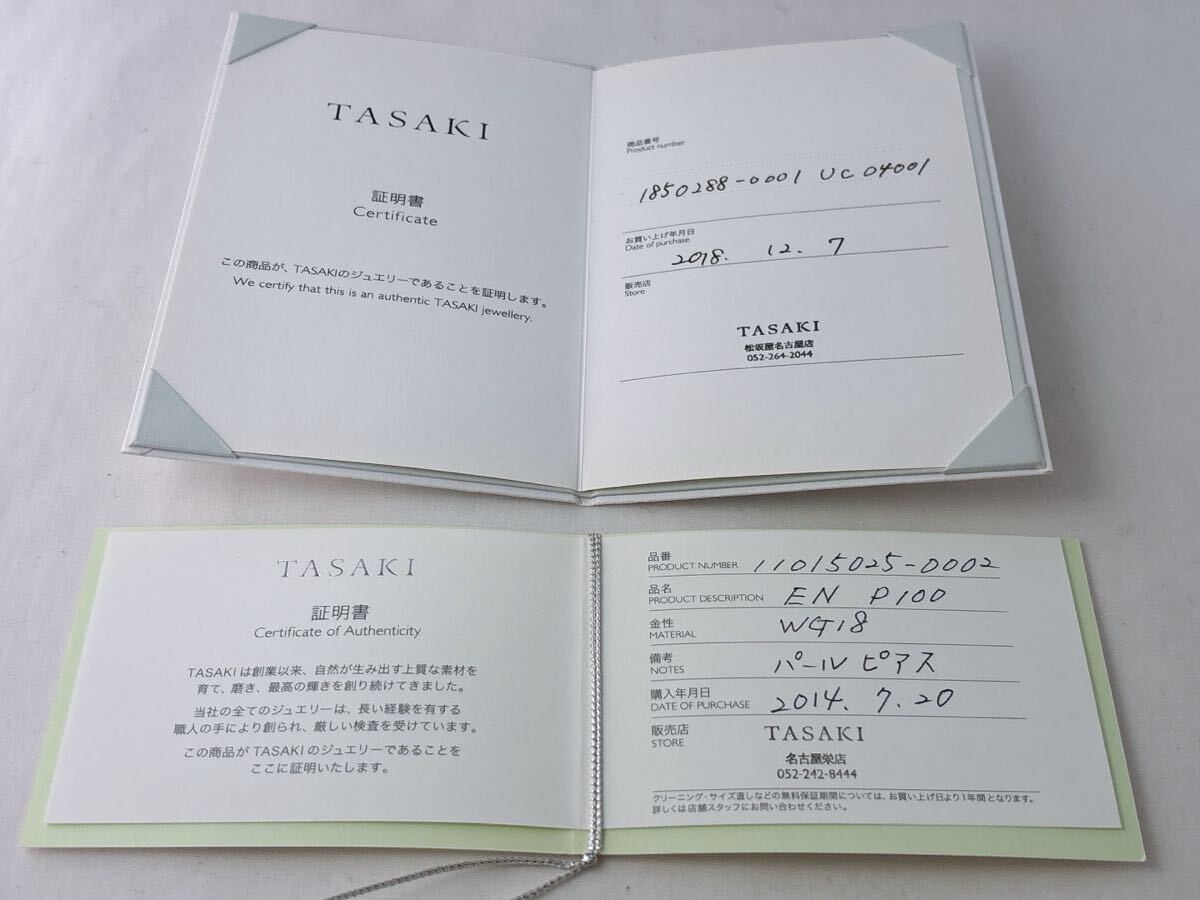 TASAKI
証明書
Certificate
この商品が、TASAKIのジュエリーであることを証明します。
We certify that this is an authentic TASAKI jewellery.
商品番号
Product number
1850288-0001 UC04001
お買い上げ年月日
Date of purchase
2018. 12. 7
販売店
Store
TASAKI
松坂屋名古屋店
052-264-2044
TASAKI
証明書
Certificate of Authenticity
TASAKIは創業以来、自然が生み出す上質な素材を
育て、磨き、最高の輝きを創り続けてきました。
当社の全てのジュエリーは、長い経験を有する
職人の手により創られ、厳しい検査を受けています。
この商品が TASAKI のジュエリーであることを
ここに証明いたします。
品番
PRODUCT NUMBER 11015025-0002
品名
PRODUCT DESCRIPTION EN P100
金性
MATERIAL WG18
備考
NOTES パールピアス
購入年月日
DATE OF PURCHASE 2014. 7. 20
販売店
STORE
TASAKI
名古屋栄店
052-242-8444
クリーニング・サイズ直しなどの無料保証期間については、お買い上げ日より1年間となります。
詳しくは店舗スタッフにお問い合わせください。